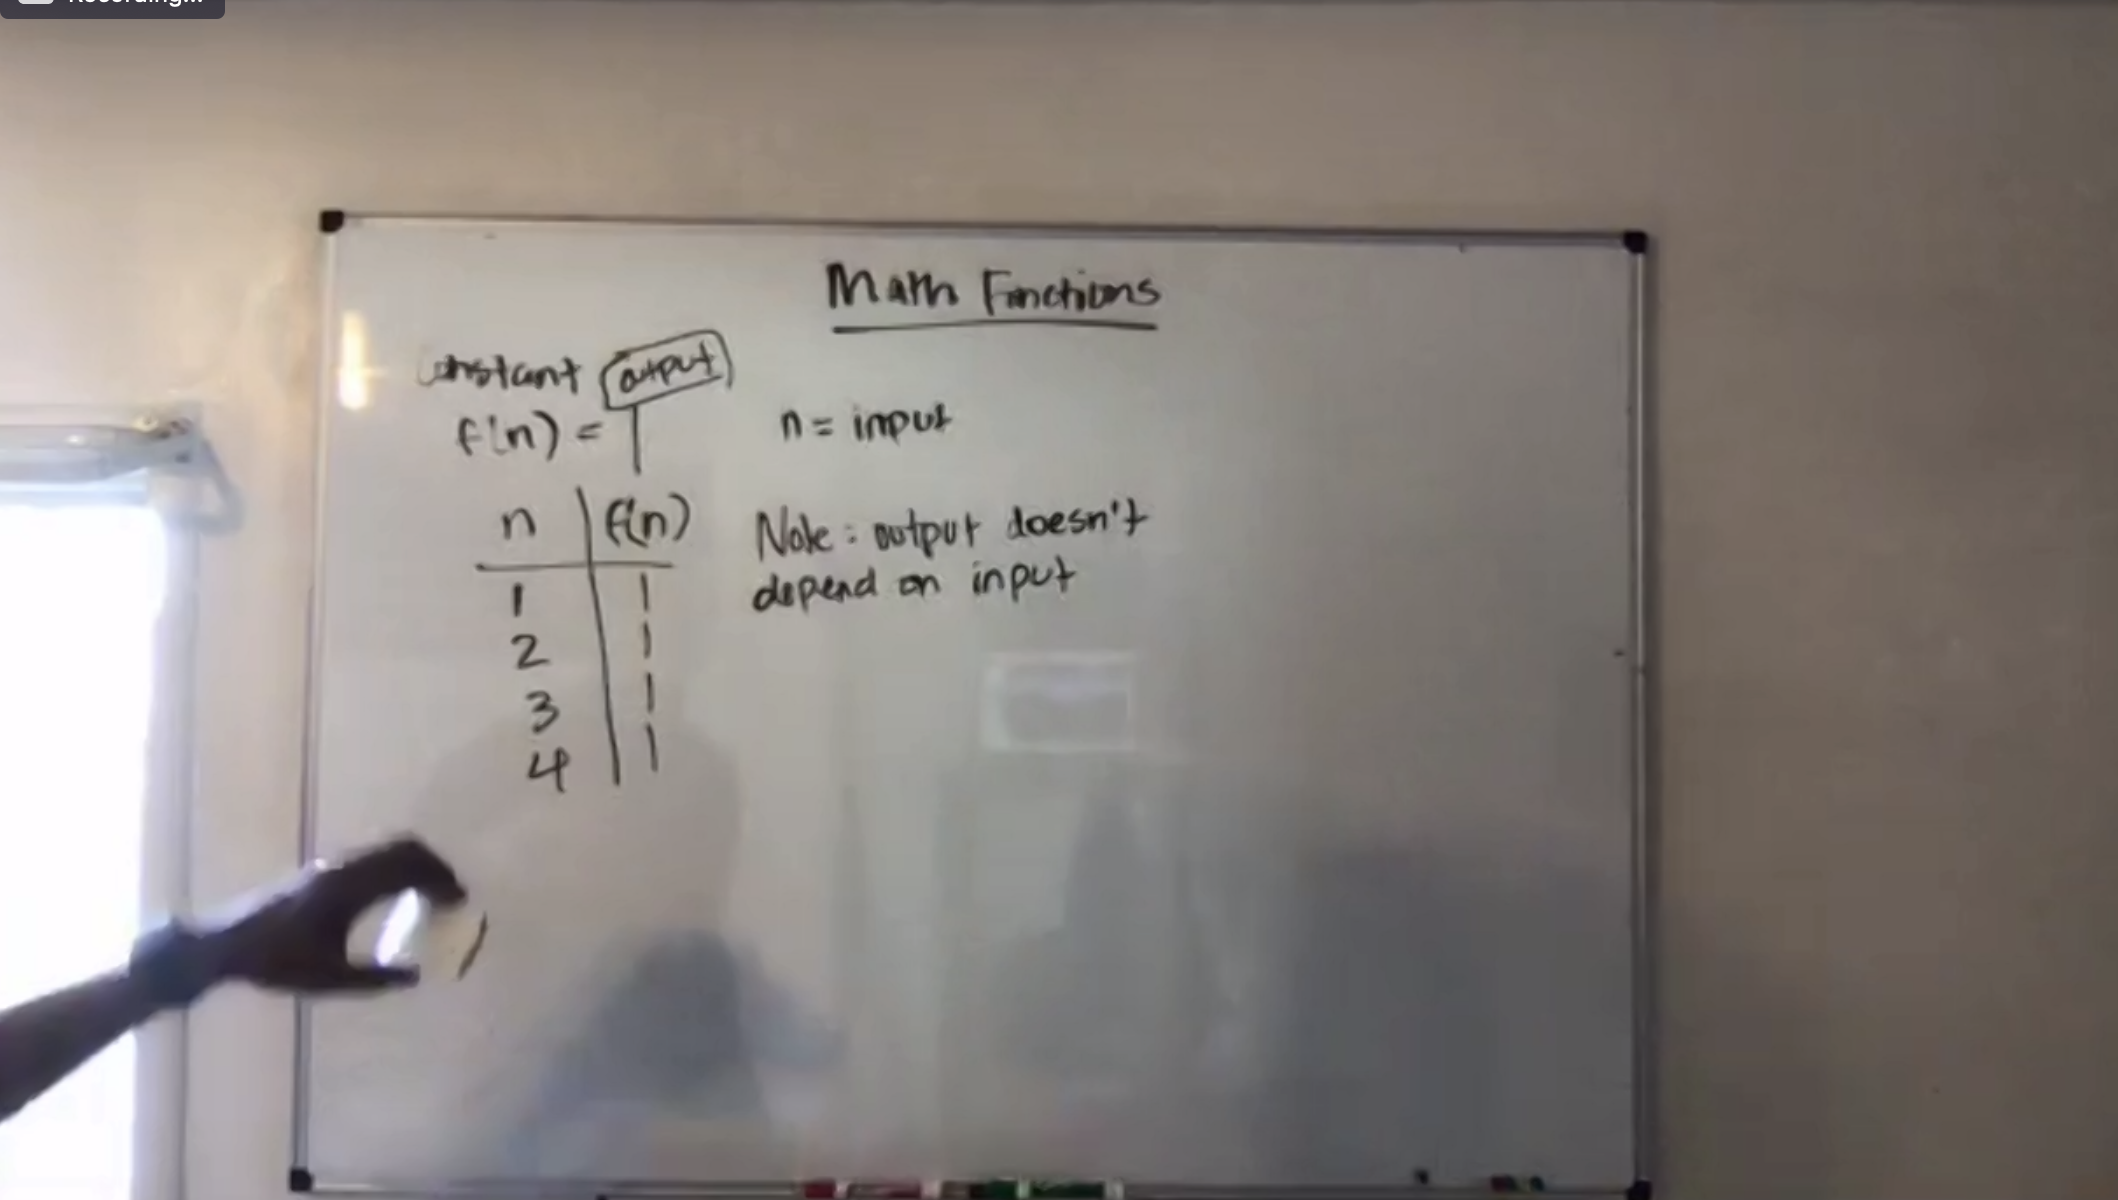 Recording...
Math Functions
Constant output
f(n) = 1
n = input
n f(n)
1 1
2 1
3 1
4 1
Note: output doesn't
depend on input